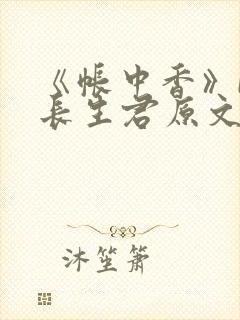 《帐中香》
长生君原文
沐笙箫